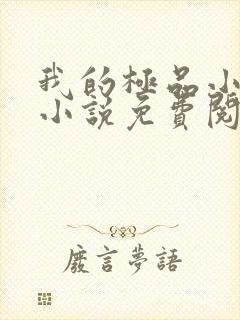 我的極品小
小説免費閱
廢言夢語